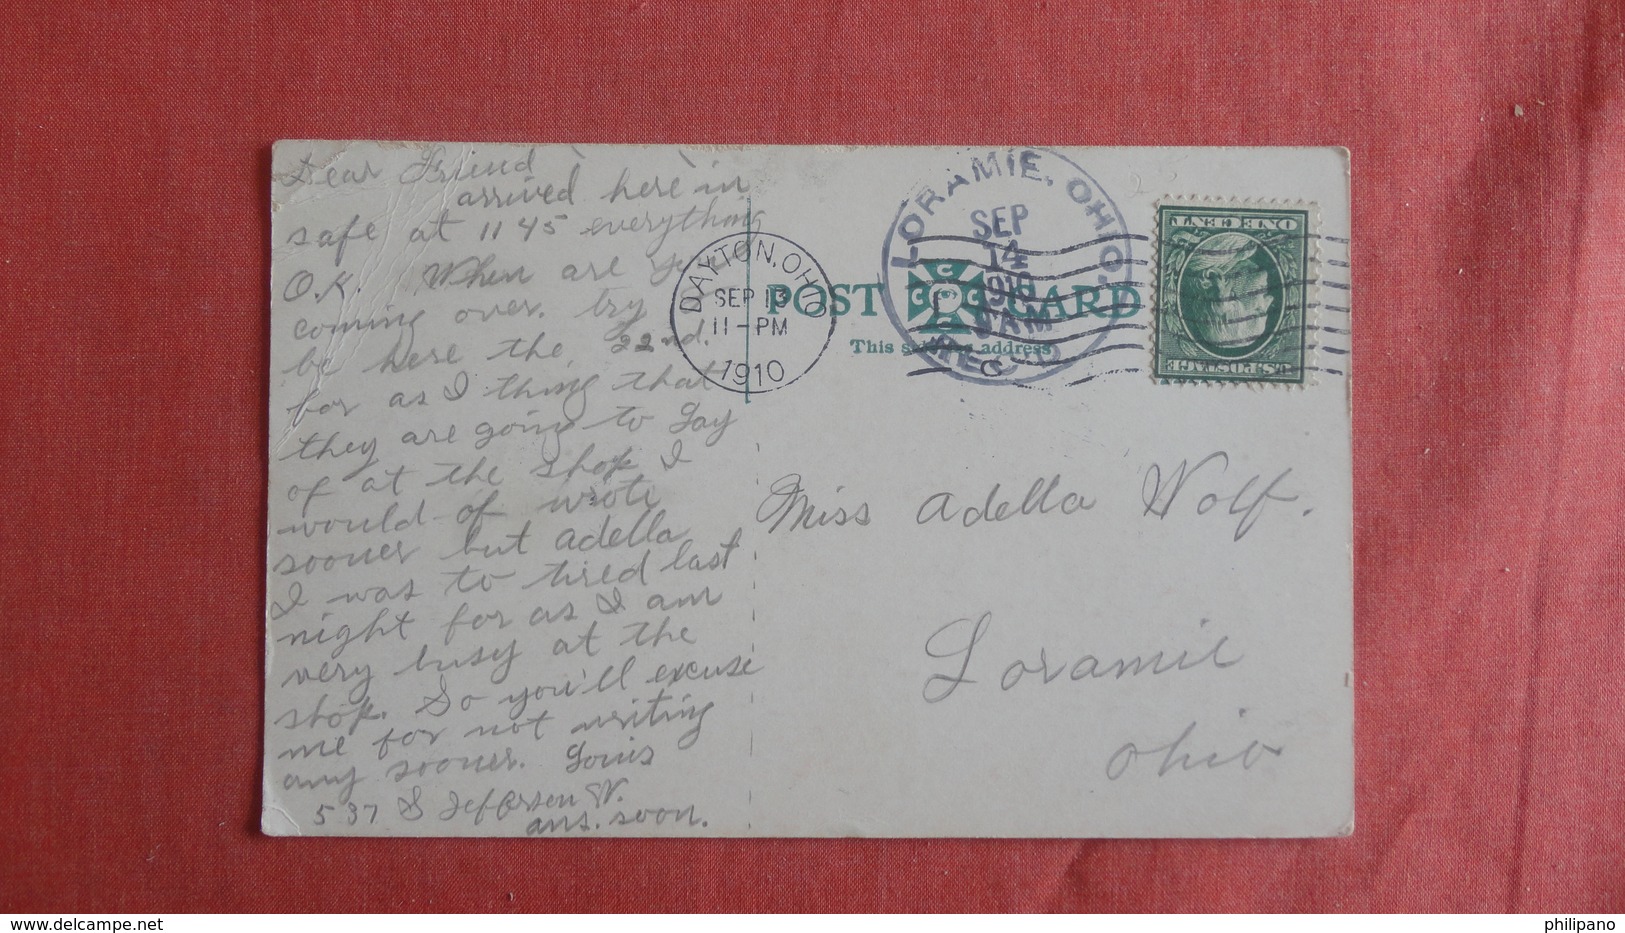 Dear Friend
arrived here in
safe at 11 45 everything
O.K. When are you
coming over. try
be here the 22nd.
for as I thing that
they are going to Lay
of at the shop I
would of wrote
sooner but adella
I was to tired last
night for as I am
very busy at the
shop. So you'll excuse
me for not writing
any sooner. Louis
537 S Jefferson
ans. soon.
DAYTON, OHIO
SEP 13
11-PM
1910
POST CARD
This side address
LORAMIE, OHIO.
SEP
14
1910
AM
REC'D
ONE CENT
U.S. POSTAGE
Miss Adella Wolf.
Loramie
Ohio
www.delcampe.net
philipano